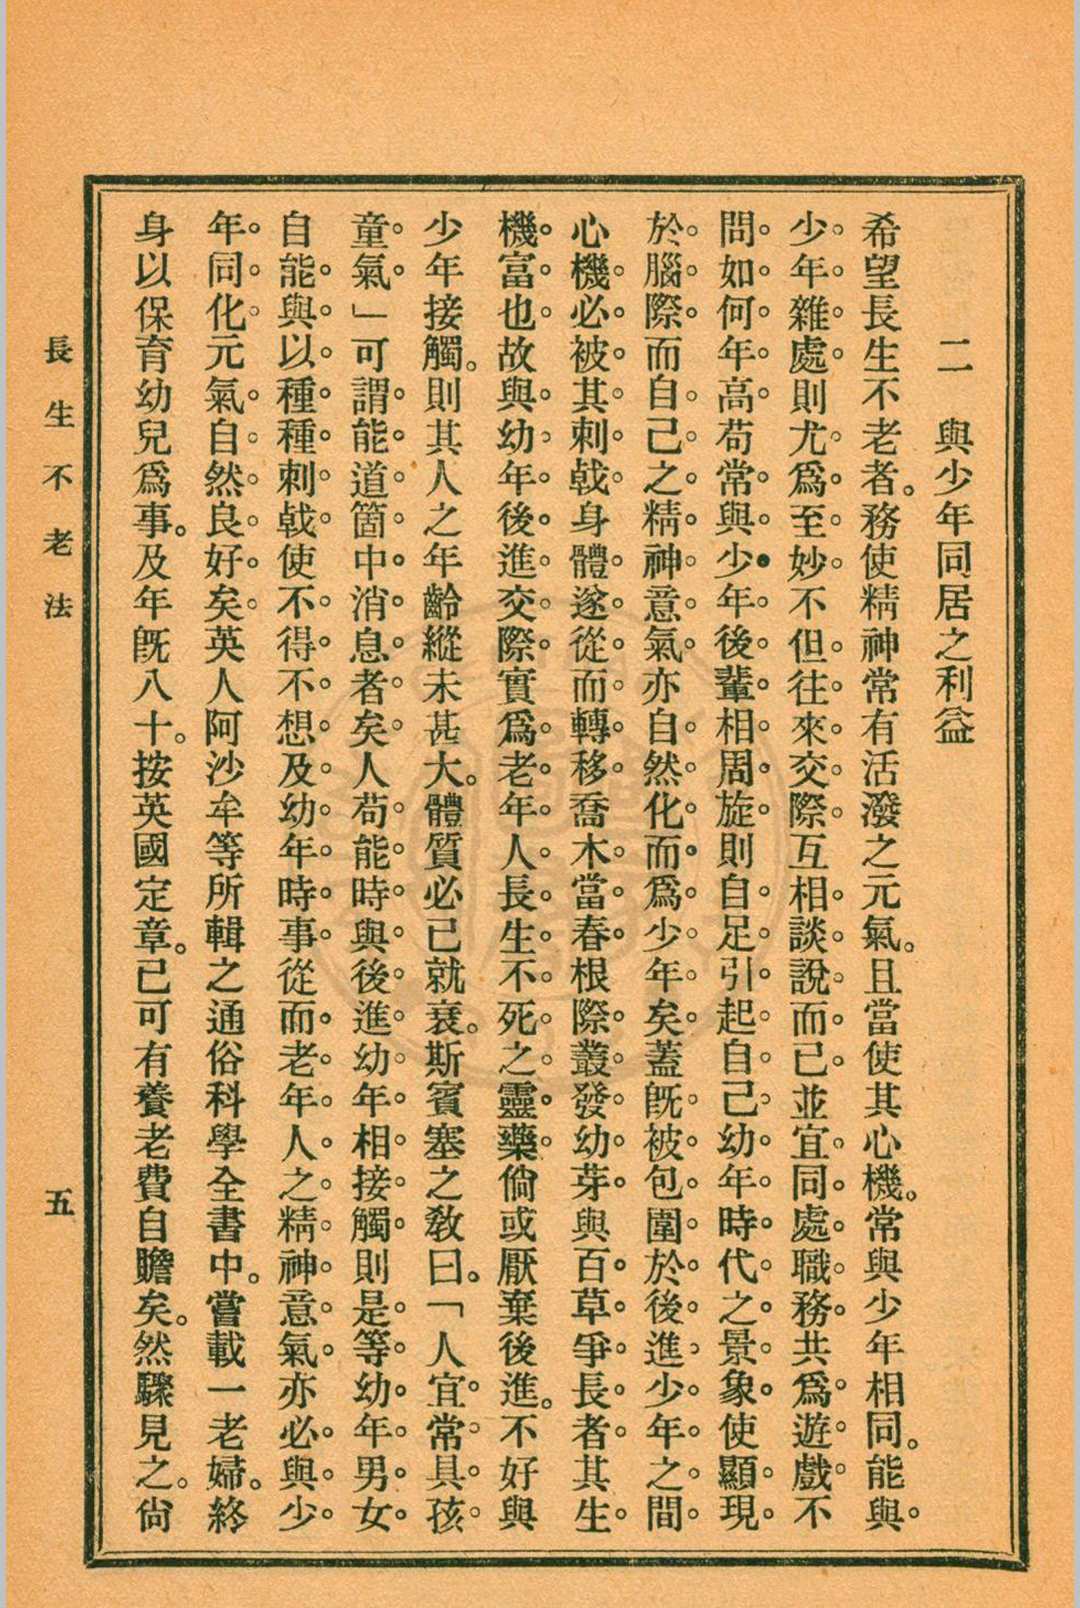 二　與少年同居之利益
希望長生不老者。務使精神常有活潑之元氣。且當使其心機。常與少年相同。能與
少年雜處則尤爲至妙不但往來交際互相談說而已並宜同處職務共爲遊戲不
問如何年高苟常與少年後輩相周旋則自足引起自己幼年時代之景象使顯現
於腦際而自己之精神意氣亦自然化而爲少年矣蓋旣被包圍於後進少年之間
心機必被其刺戟身體遂從而轉移喬木當春根際叢發幼芽與百草爭長者其生
機富也故與幼年後進交際實爲老年人長生不死之靈藥倘或厭棄後進。不好與
少年接觸。則其人之年齡縱未甚大。體質必已就衰。斯賓塞之敎曰。「人宜常具孩
童氣」可謂能道箇中消息者矣人苟能時與後進幼年相接觸則是等幼年男女
自能與以種種刺戟使不得不想及幼年時事從而老年人之精神意氣亦必與少
年同化元氣自然良好矣英人阿沙牟等所輯之通俗科學全書中。嘗載一老婦。終
身以保育幼兒爲事。及年旣八十。按英國定章。已可有養老費自贍矣。然驟見之。尙
長生不老法
五